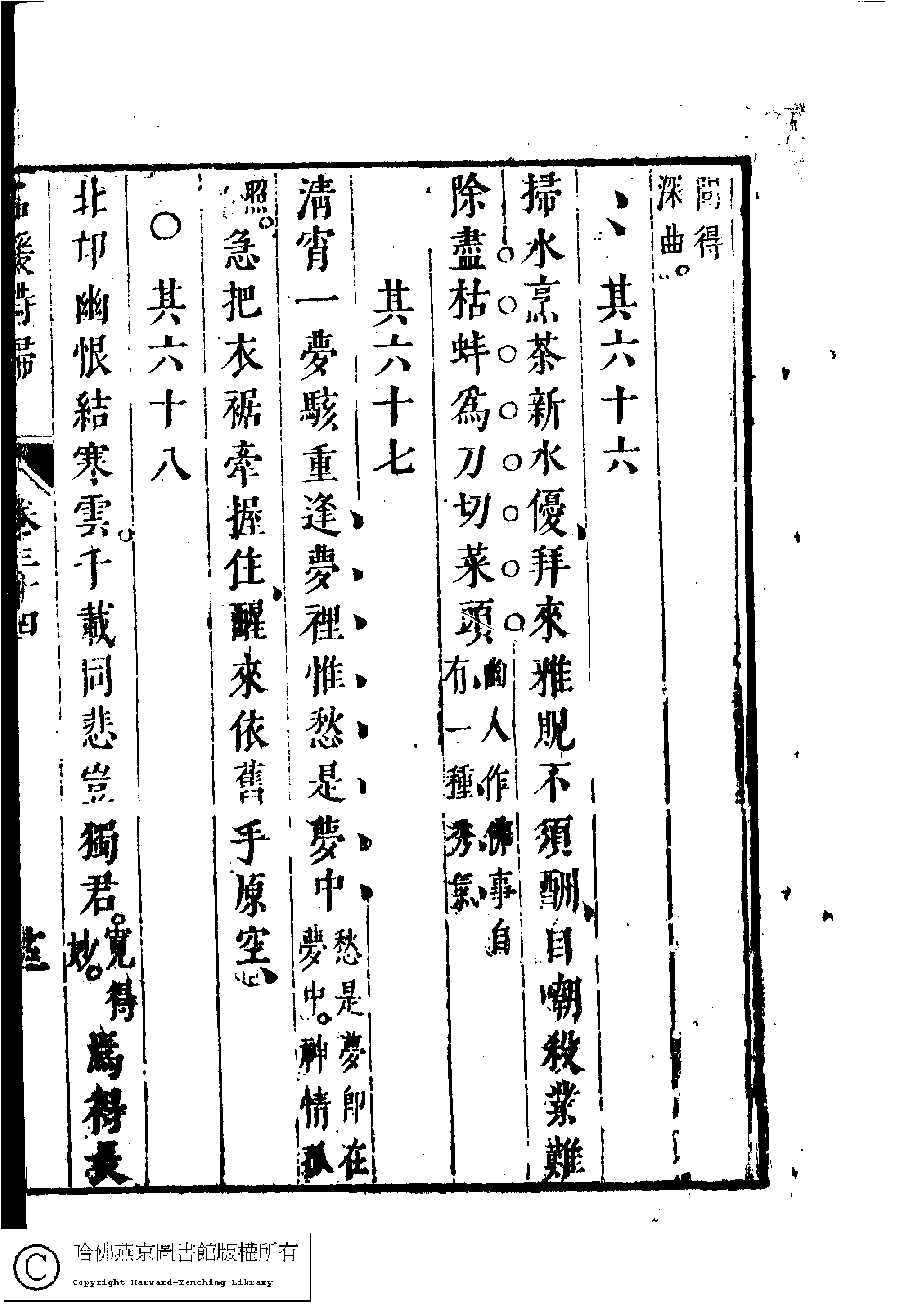 問得
深曲
其六十六
掃水烹茶新水優拜來雅貺不須酬自嘲殺業難
除盡枯蚌爲刀切菜頭
幽人作佛事自
有一種秀氣
其六十七
清宵一夢駭重逢夢裡惟愁是夢中
愁是夢即在
夢中。神情孤
照。
急把衣裾牽握住醒來依舊手原空
○其六十八
北邙幽恨結寒雲千載同悲豈獨君
寬得
妙。
焉得長
名媛詩歸 卷三十四
哈佛燕京圖書館版權所有
Copyright Harvard-Yenching Library